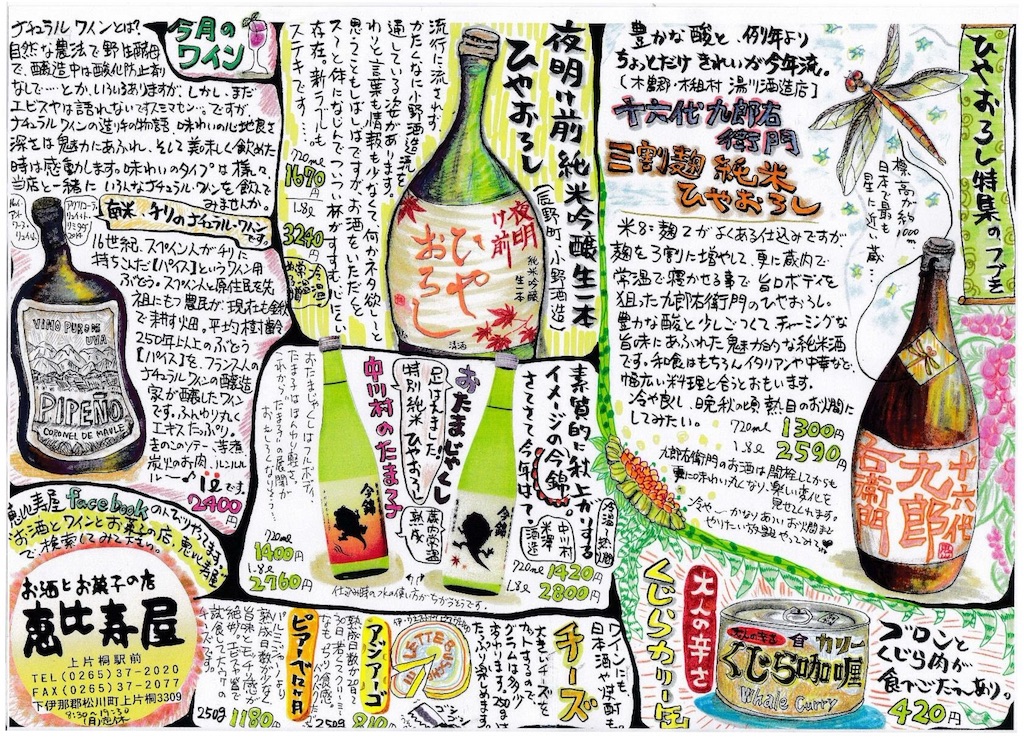 ひやおろし特集のつづき
豊かな酸と、例年より
ちょっとだけきれいが今年流。
(木曽郡・木祖村 湯川酒造店)
十六代九郎右
衛門
三割麹 純米
ひやおろし
標高が約
1000m
日本で最も
星に近い蔵…
米8:麹2がよくある仕込みですが
麹を3割に増やして、更に蔵内で
常温で寝かせる事で旨口ボディを
狙った九郎右衛門のひやおろし。
豊かな酸と少しごつくて、チャーミングな
旨味にあふれた魅力的な純米酒
です。和食はもちろんイタリアンや中華など、
幅広い料理と合うとおもいます。
冷や良し、晩秋の頃熱目のお燗に
してみたい。
720ml 1300円
1.8L 2590円
九郎右衛門のお酒は開栓してからも
更に味わい丸くなり、楽しい変化を
見せてくれます。
冷や〜かなりあついお燗まで
やりたい放題やってみて
十六代
九郎
右衛門
夜明け前 純米吟醸生一本
ひやおろし
(辰野町、小野酒造)
流行に流されず
かたくなに小野酒造流を
通している姿があります。
わりと言葉も情報も少なくて、何かネタ欲し〜と
思うこともしばしばですが、お酒をいただくと
ス〜と体になじんでついつい杯がすすむ、にくい
存在。新ラベルも
ステキです…
720ml
1670円
1.8L
3240円
夜明け前
ひやおろし
純米吟醸
生一本
清酒
今月の
ワイン
ナチュラルワインとは?
自然な農法で野生酵母
で、醸造中は酸化防止剤
なしで…とか、いろいろありますが、しかし、まだ
エビスヤは語れないですスミマセン…。ですが、
ナチュラルワインの造り手の物語、味わいの心地良さ
深さは魅力にあふれ、そして美味しく飲めた
時は感動します。味わいのタイプは様々、
当店と一緒にいろんなナチュラルワインを飲んで
みませんか。
南米、チリのナチュラルワインです。
16世紀、スペイン人がチリに
持ちこんだ【パイス】というワイン用
ぶどう。スペイン人と原住民を先
祖にもつ農民が、現在も鋤
で耕す畑。平均樹齢
250年以上のぶどう
【パイス】を、フランス人の
ナチュラルワインの醸造
家が醸したワイン
です。ふんわり丸く
エキスたっぷり。
きのこのソテー、芋煮
炭火のお肉、ルンルル
ル〜♪1ℓです。
2400円
VINO PURO DE
UVA
PIPEÑO
CORONEL DE MAULE
素質的に秋上がりする
イメージの今錦。
さてさて今年は?
(中川村
米澤
酒造)
おたまじゃくし
足はえました。
特別純米 ひやおろし
中川村のたま子
おたまじゃくしはフルボディ、
たま子はほんのり軽さ。
720ml
1400円
1.8L
2760円
720ml 1420円
1.8L 2800円
今錦
今錦
仕込み時の水の使い方がちがうとうです。
恵比寿屋facebookのんびりやってます。
お酒とワインとお菓子の店、恵比寿屋
で検索してみて下さい。
お酒とお菓子の店
恵比寿屋
上片桐駅前
TEL(0265)37-2020
FAX(0265)37-2077
下伊那郡松川町上片桐3309
8:30〜19:30
(月)定休
チーズ
ワインにも
日本酒や焼酎も
大きいチーズを
カットするので
アジアーゴ
熟成日数が20日〜
30日、若くクリーミー
810円
ピアーベ12ヶ月
250g 1180円
大人の辛さ
くじらカリー缶
大人の辛さ
カリー
くじら咖喱
Whale Curry
ゴロンと
くじら肉が
食べごたえあり。
420円